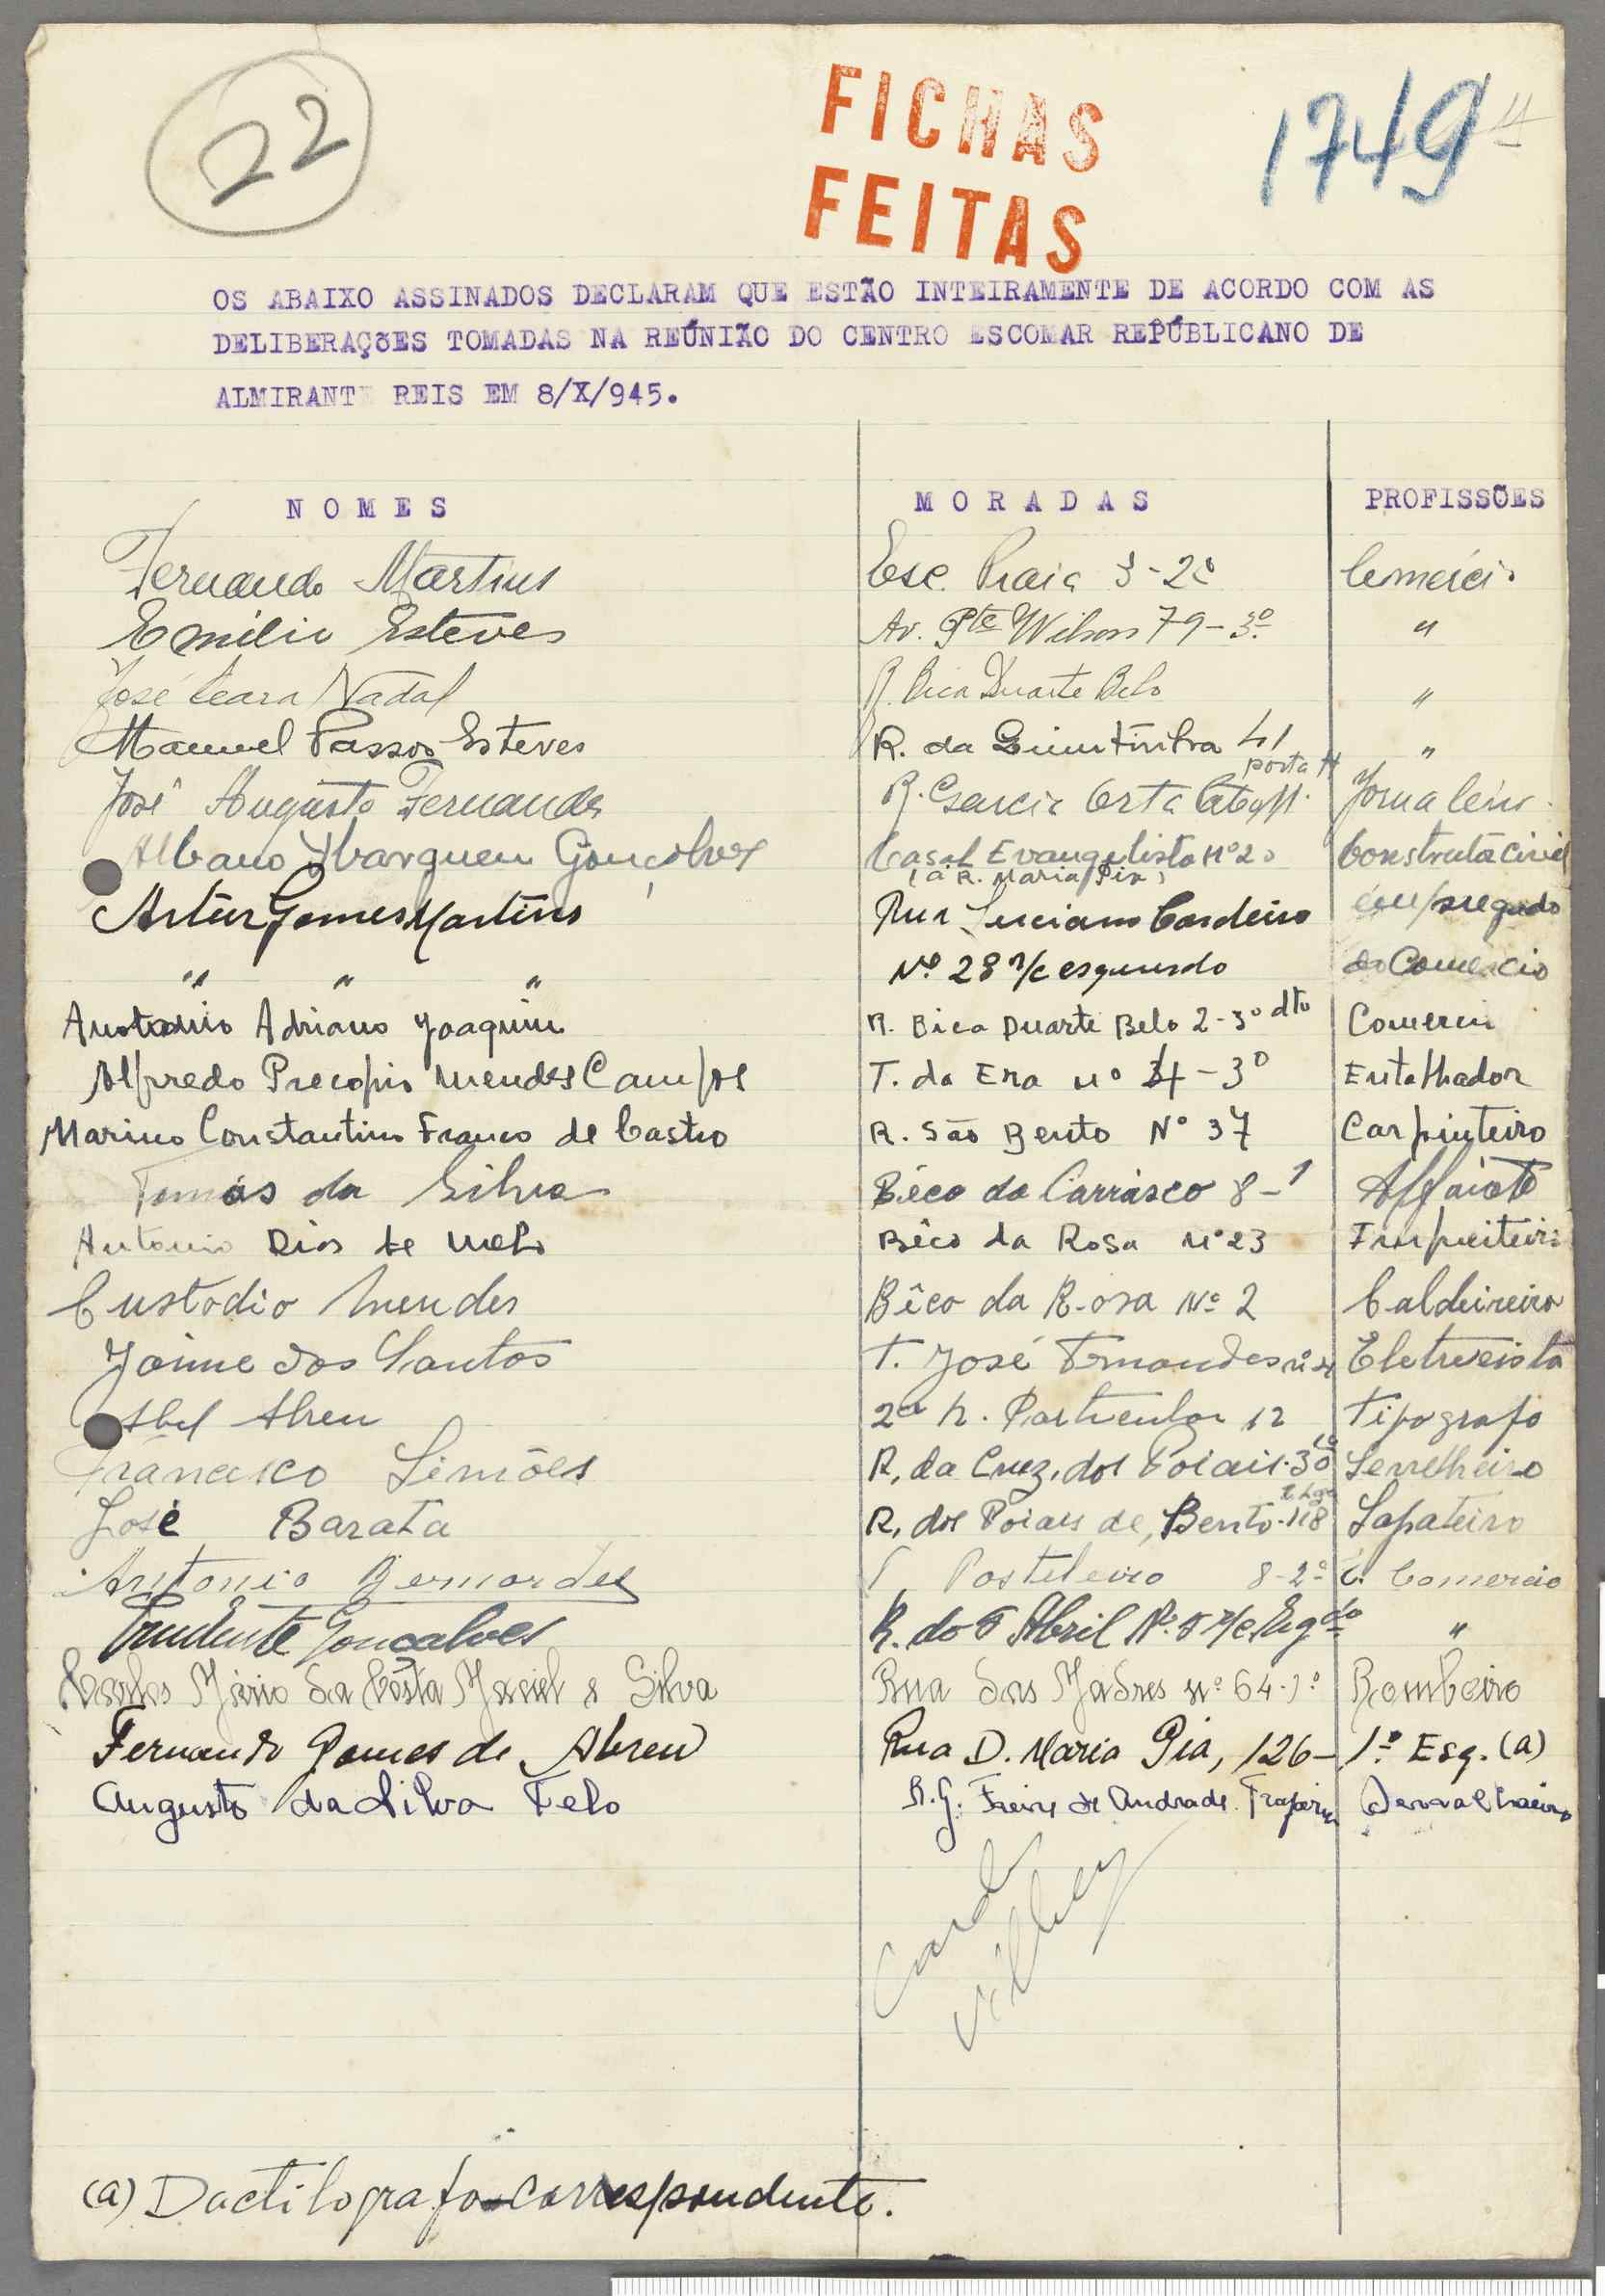 22
FICHAS
FEITAS
1749
OS ABAIXO ASSINADOS DECLARAM QUE ESTÃO INTEIRAMENTE DE ACORDO COM AS
DELIBERAÇÕES TOMADAS NA REÚNIÃO DO CENTRO ESCOMAR REPÚBLICANO DE
ALMIRANTE REIS EM 8/X/945.
NOMES MORADAS PROFISSÕES
Fernando Martins Esc. Praia 3-2º Comércio
Emilio Esteves Av. Pte Wilson 79-3º "
José Ceara Nadal R. Bica Duarte Belo "
Manuel Passos Esteves R. da 41 "
porta H
José Augusto Fernandes R. Garcia Orta
Albano Gonçalves Casal Evangelista Nº 20
(á R. Maria Pia)
Artur Gomes Martins Rua Luciano Cordeiro empregado
" " " Nº 28 r/c esquerdo do Comercio
Adriano Joaquim R. Bica Duarte Belo 2-3º dto Comercio
Alfredo Precopio Mendes Campos T. da Era nº -3º Entalhador
Marino Constantino Franco de Castro R. São Bento Nº 37 Carpinteiro
Tomás da Silva Bêco do Carrasco 8-1 Alfaiate
Antonio Dias de Melo Bêco da Rosa nº 23
Custodio Mendes Bêco da Rosa Nº 2 Caldeireiro
Jaime dos Santos T. José Fernandes nº Eletrecista
Abel Abreu 2ª R. Particular 12 Tipografo
Francisco Simões R. da Cruz. dos Poiais. Serrelheiro
José Barata R. dos Poiais de, Bento. 118 Sapateiro
Antonio Bernardes T. Postileiro 8-2º E. Comercio
Prudente Gonçalves R. do 5 Abril Nº. 5 r/c. Esqdo "
Carlos Mário da Costa Maciel e Silva Rua das Madres nº 64-1º Bombeiro
Fernando Gomes de Abreu Rua D. Maria Pia, 126- 1º Esq. (a)
Augusto da Silva Telo R. G. Freire de Andrade
(a) Dactilografo-correspondente.